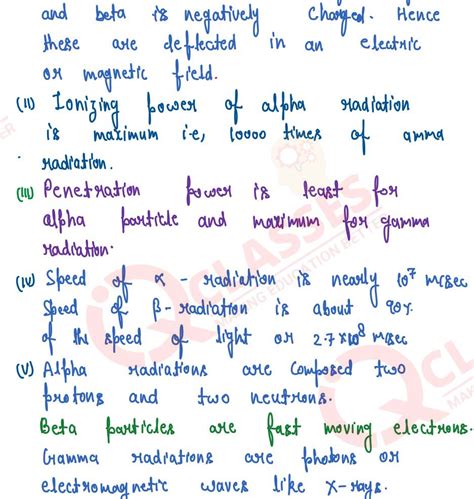 and beta is negatively charged. Hence
these are deflected in an electric
or magnetic field.
(II) Ionizing power of alpha radiation
is maximum i.e, 10000 times of amma
radiation.
(III) Penetration power is least for
alpha particle and maximum for gamma
radiation.
(IV) Speed of α - radiation is nearly 10⁷ m/sec
Speed of β - radiation is about 90%
of the speed of light or 2.7×10⁸ m/sec
(V) Alpha radiations are composed two
protons and two neutrons.
Beta particles are fast moving electrons.
Gamma radiations are photons or
electromagnetic waves like X-rays.
CLASSES